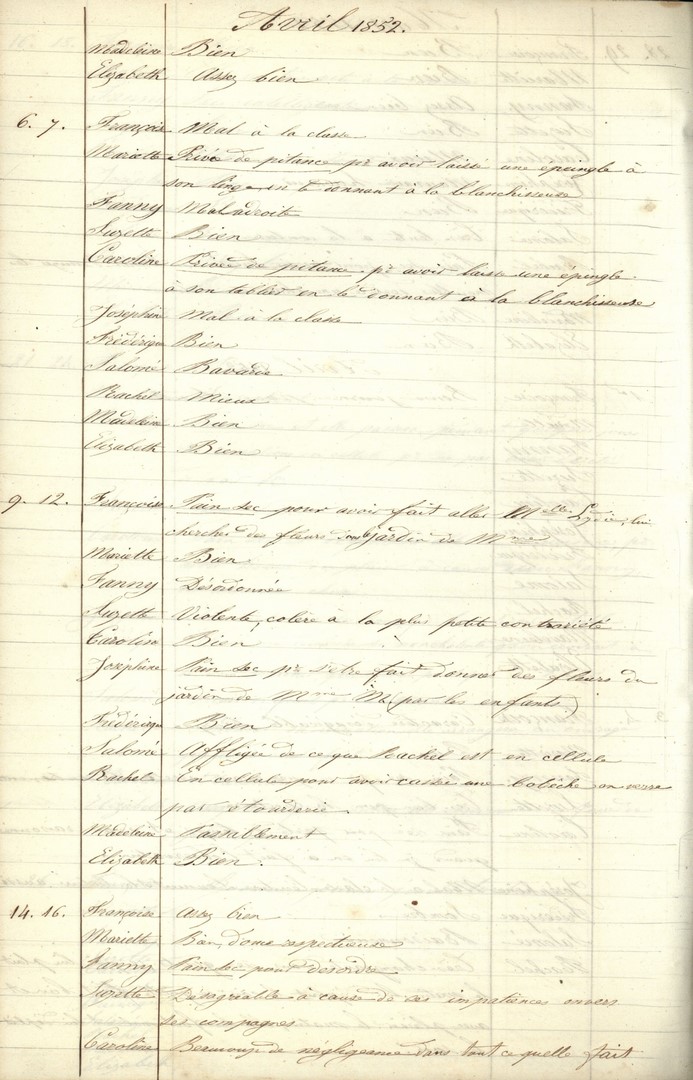 Avril 1852.
Madeleine Bien
Elizabeth Assez bien
6. 7. Françoise Mal à la classe
Mariette Privée de pitance pr avoir laissé une épeingle à
son linge en le donnant à la blanchisseuse
Fanny Maladroite
Suzette Bien
Caroline Privée de pitance pr avoir laissé une épingle
à son tablier en le donnant à la blanchisseuse
Joséphine Mal à la classe
Frédérique Bien
Salomé Bavarde
Rachel Mieux
Madeleine Bien
Elizabeth Bien
9. 12. Françoise Pain sec pour avoir fait aller Melle Lydie, lui
chercher des fleurs jardin de Mme
Mariette Bien
Fanny Désordonnée
Suzette Violente, colère à la plus petite contrariété
Caroline Bien
Joséphine Pain sec pr s'etre fait donner des fleurs du
jardin de Mme M. (par les enfants)
Frédérique Bien
Salomé Affligée de ce que Rachel est en cellule
Rachel En cellule pour avoir cassé une bobêche en verre
par étourderie.
Madeleine Passablement
Elizabeth Bien.
14. 16. Françoise Assez bien
Mariette Bien, douce respectueuse
Fanny Pain sec pour désordre
Suzette Désagréable à cause de ces impatiences envers
ses compagnes
Caroline Beaucoup de négligeance dans tout ce quelle fait